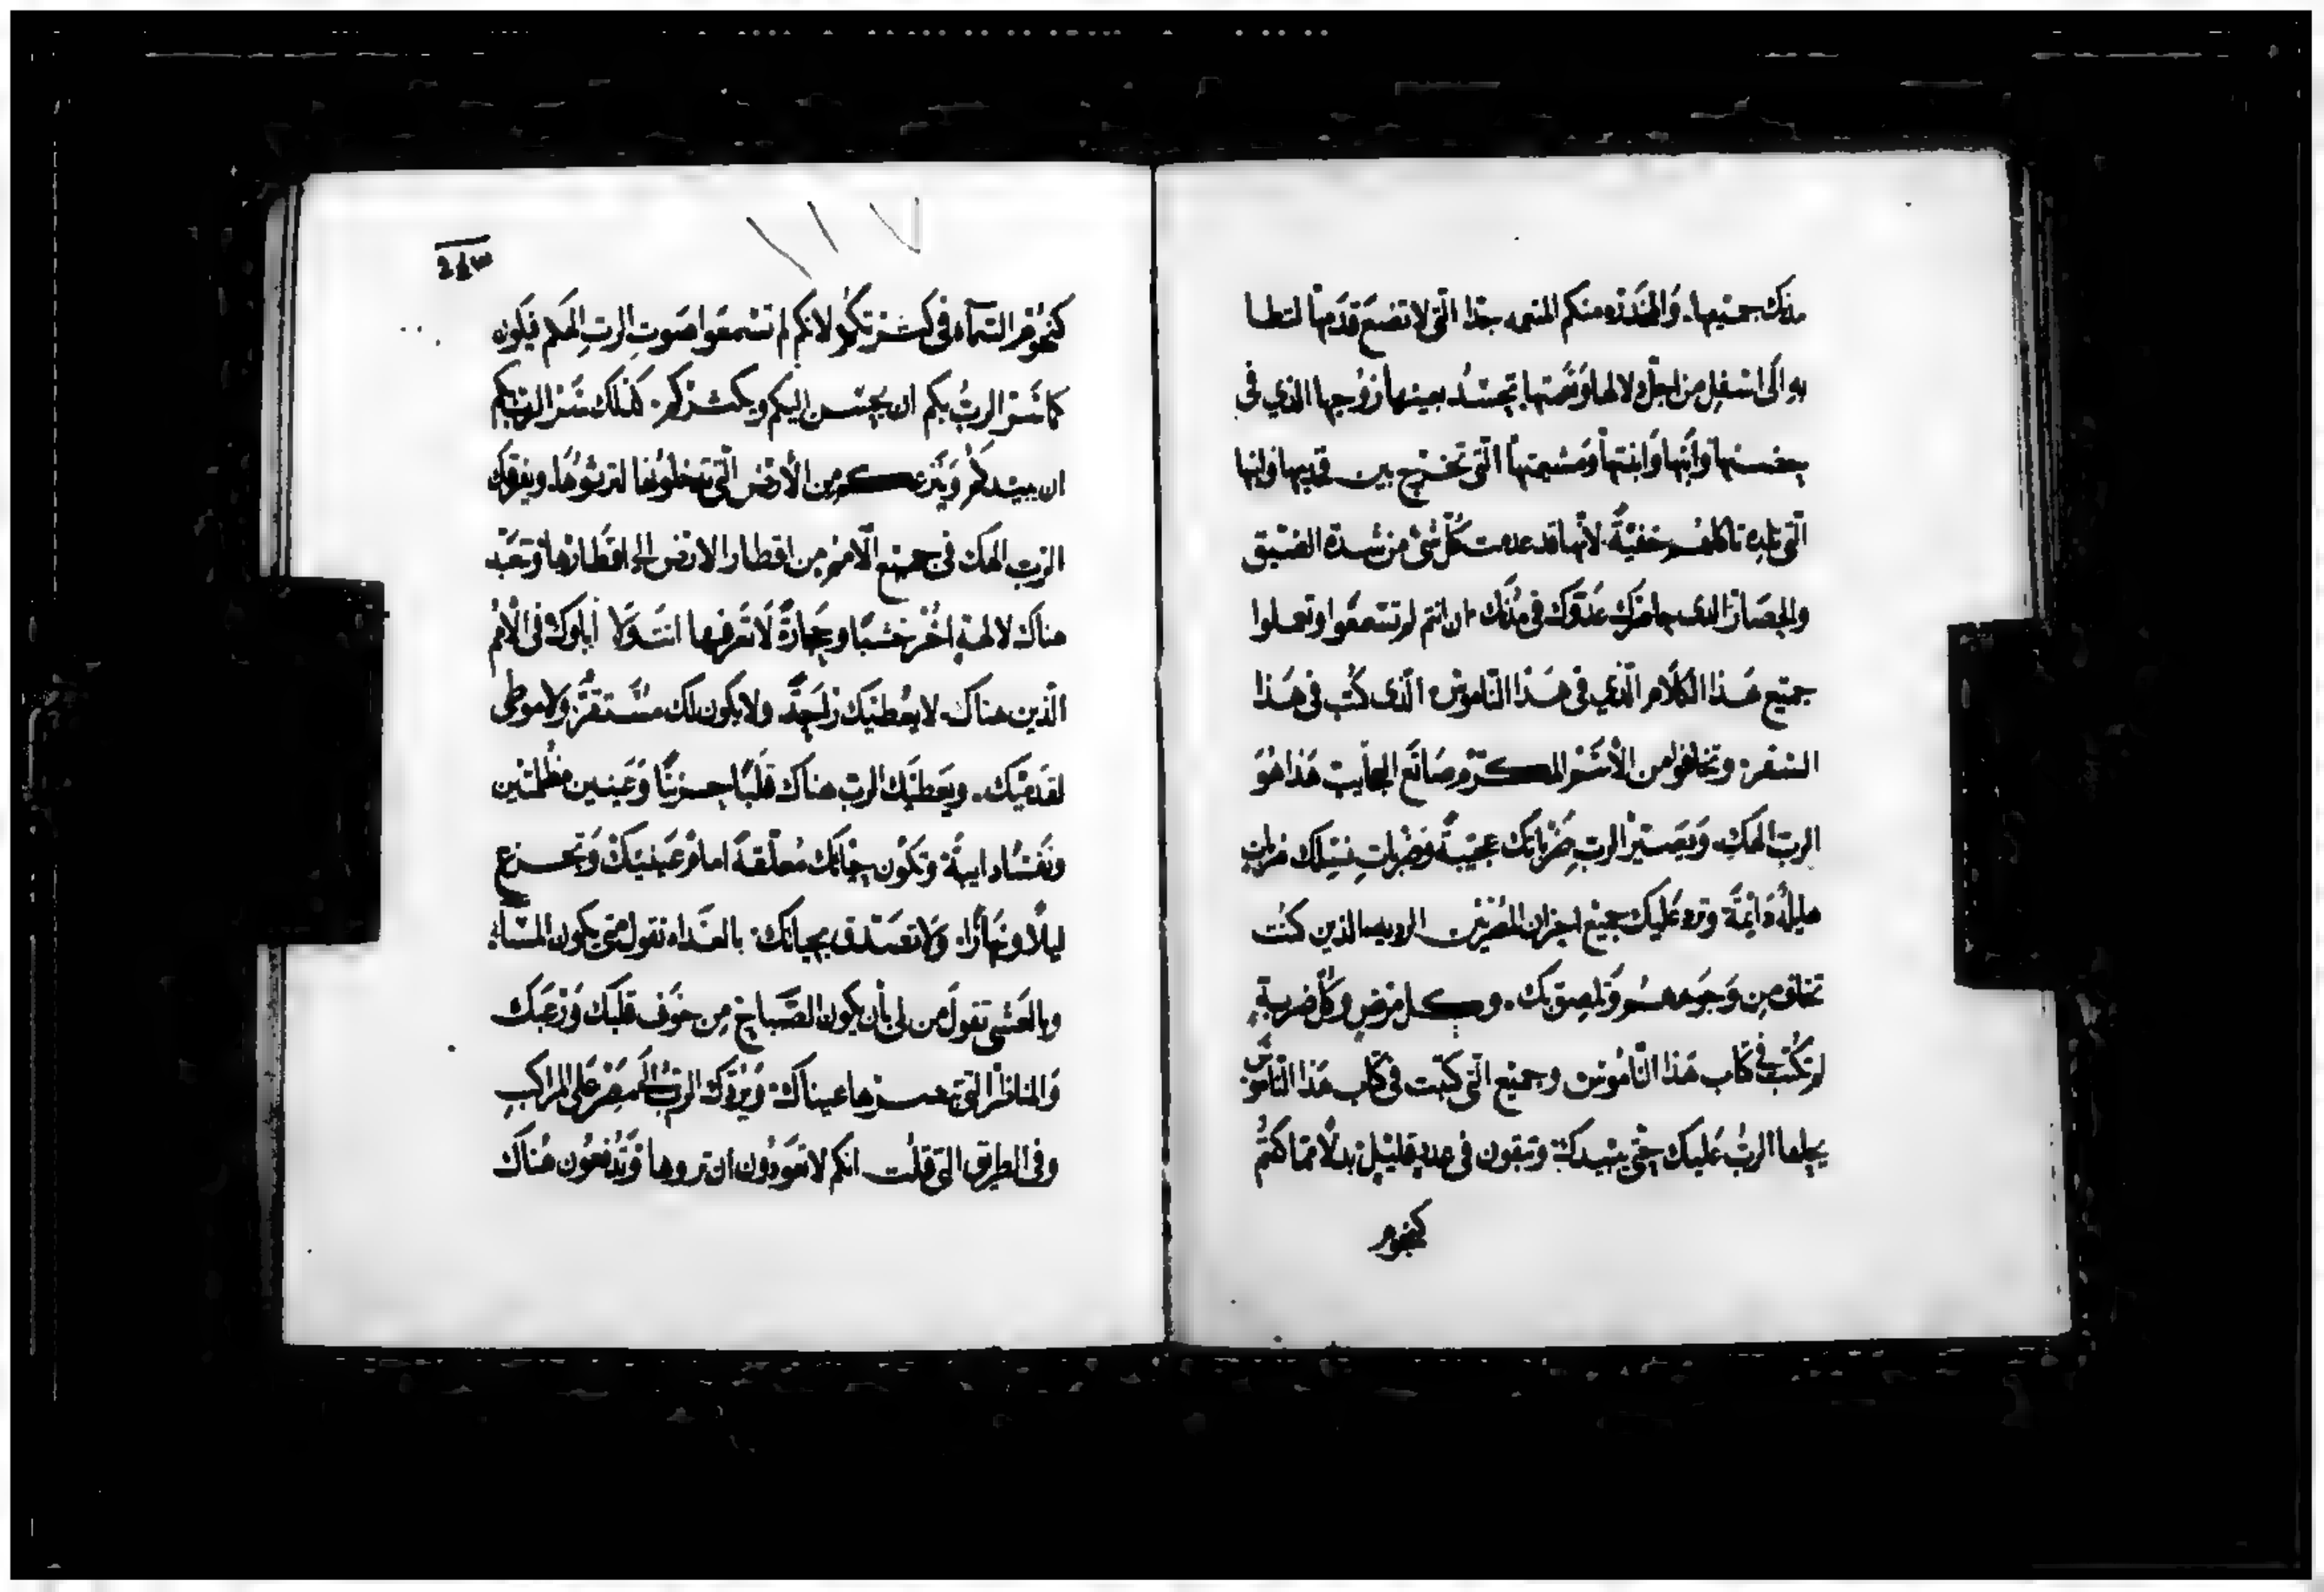 مدنك جميعها. والمخدره منكم المنعمه جدا التى لا تضع قدمها لتطا
به الى اسفل من اجل دلالها ونعمتها تحسد بعينها زوجها الذي في
حضنها وابنها وابنتها ومشيمتها التى تخرج بين فخديها وابنها
التى تلده تاكلهم خفيةً. لانها قد عدمت كل شى من شدة الضيق
والحصار الذى يحاصرك عدوك في مدنك ان انتم لم تسمعوا وتعملوا
جميع هذا الكلام الذي فى هذا الناموس الذى كتب فى هذا
السفر. وتخافوا من الاسم المكرم صانع العجايب هذا هو
الرب الهك. ويصير الرب ضرباتك عجيبةً وضربات نسلك ضربات
هايله دايمةً ويرد عليك جميع احزان المصريين الرديه الذين كنت
تخاف من وجوههم وتلصق بك. وكل مرض وكل ضربةٍ
لم تكتب في كتاب هذا الناموس وجميع التى كتبت فى كتاب هذا الناموس
يجلبها الرب عليك حتى يبيدك وتبقون فى عدد قليل بدلا مما كنتم
كنجوم
كنجوم السماء في كثرتكم لانكم لم تسمعوا صوت الرب الهكم فيكون
كما سر الرب بكم ان يحسن اليكم ويكثركم. كذلك يسر الرب بكم
ان يبيدكم وينزعكم من الأرض التى تدخلونها لترثوها. ويفرقك
الرب الهك فى جميع الامم من اقطار الارض الى اقطارها وتعبد
هناك لالهة اخر خشبا وحجارةً لا تعرفها انت ولا اباوك فى الأمم
الذين هناك. لا يعطيك راحةً ولا يكون لك مستقر ولا موطى
لقدميك. ويعطيك الرب هناك قلبًا حزينًا وعينين مظلمتين
ونفسًا دايبة وتكون حياتك معلقةً امام عينيك وتجزع
ليلًا ونهارًا ولا تصدق بحياتك بالغداه تقول متى يكون المساء
وبالعشى تقول من لى بأن يكون الصباح من خوف قلبك ورعبك
والمناظر التى تبصرها عيناك ويردك الرب الى مصر على المراكب
وفى الطريق التى قلت انكم لا تعودون ان تروها وتدفعون هناك